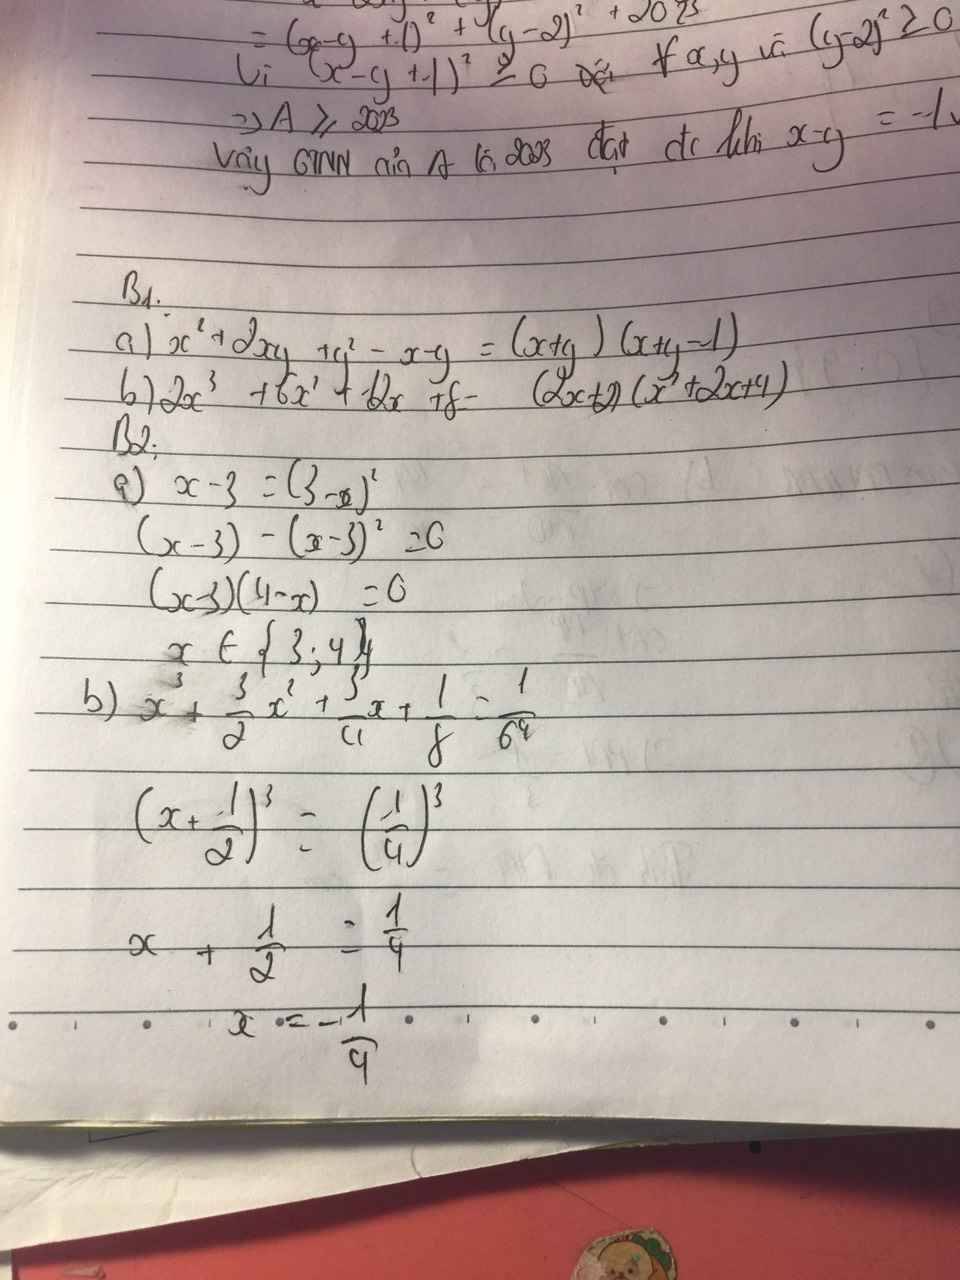 = (x-y+1)² + (y-2)² + 2023
Vì (x-y+1)² ≥ 0 ∀ x,y và (y-2)² ≥ 0
=> A ≥ 2023
Vậy GTNN của A là 2023 đạt đc khi x-y = -1
B1.
a) x² + 2xy + y² - x-y = (x+y)(x+y-1)
b) 2x³ + 6x² + 12x + 8 = (2x+2)(x²+2x+4)
B2:
a) x-3 = (3-x)²
(x-3) - (x-3)² = 0
(x-3)(4-x) = 0
x ∈ {3; 4}
b) x³ + 3/2 x² + 3/4 x + 1/8 = 1/64
(x + 1/2)³ = (1/4)³
x + 1/2 = 1/4
x = -1/4